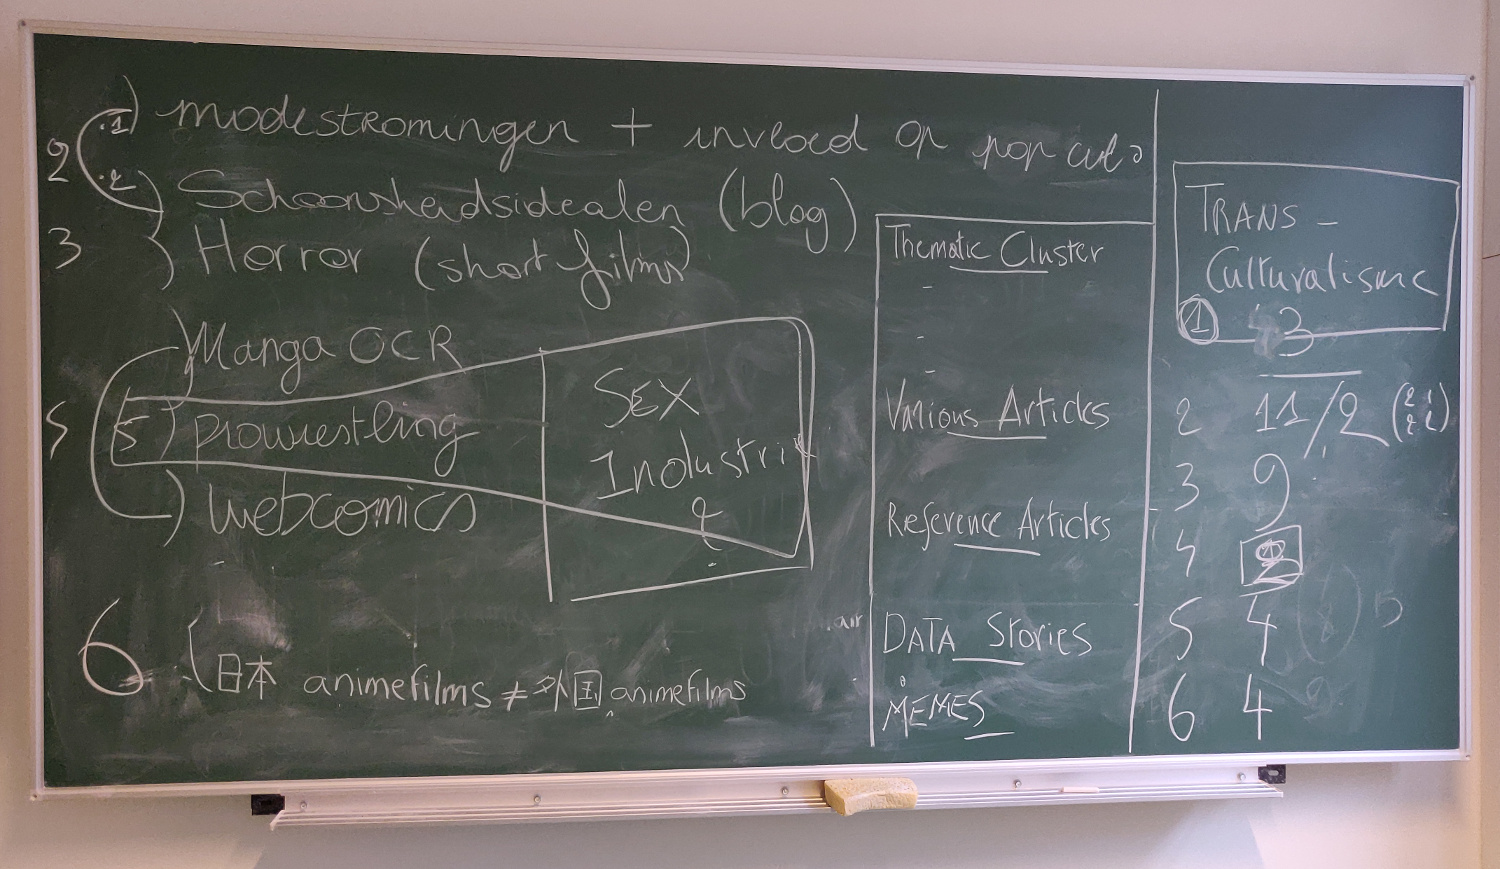 .1) modestromingen + invloed op pop cult
2
.2) Schoonheidsidealen (blog)
3 ) Horror (short films)
) Manga OCR
5 5) prowrestling
) webcomics
SEX
Industrie
?
6 日本 animefilms ≠ 外国 animefilms
Thematic Cluster
-
-
-
Various Articles
Reference Articles
DATA Stories
MEMES
TRANS -
Culturalisme
1 3
2 11/2
3 9
4
5 4
6 4